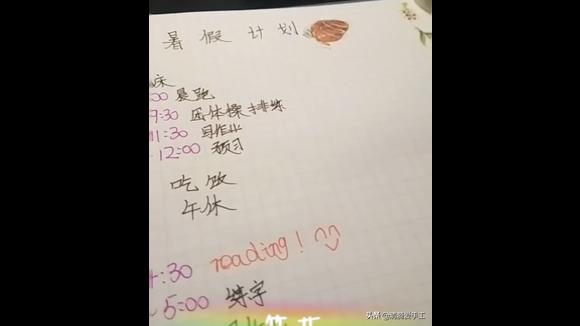 暑假计划
床
:00 晨跑
9:30 团体操排练
11:30 写作业
-12:00 预习
吃饭
午休
4:30 reading!
~5:00 练字
头条@萌颜爱手工